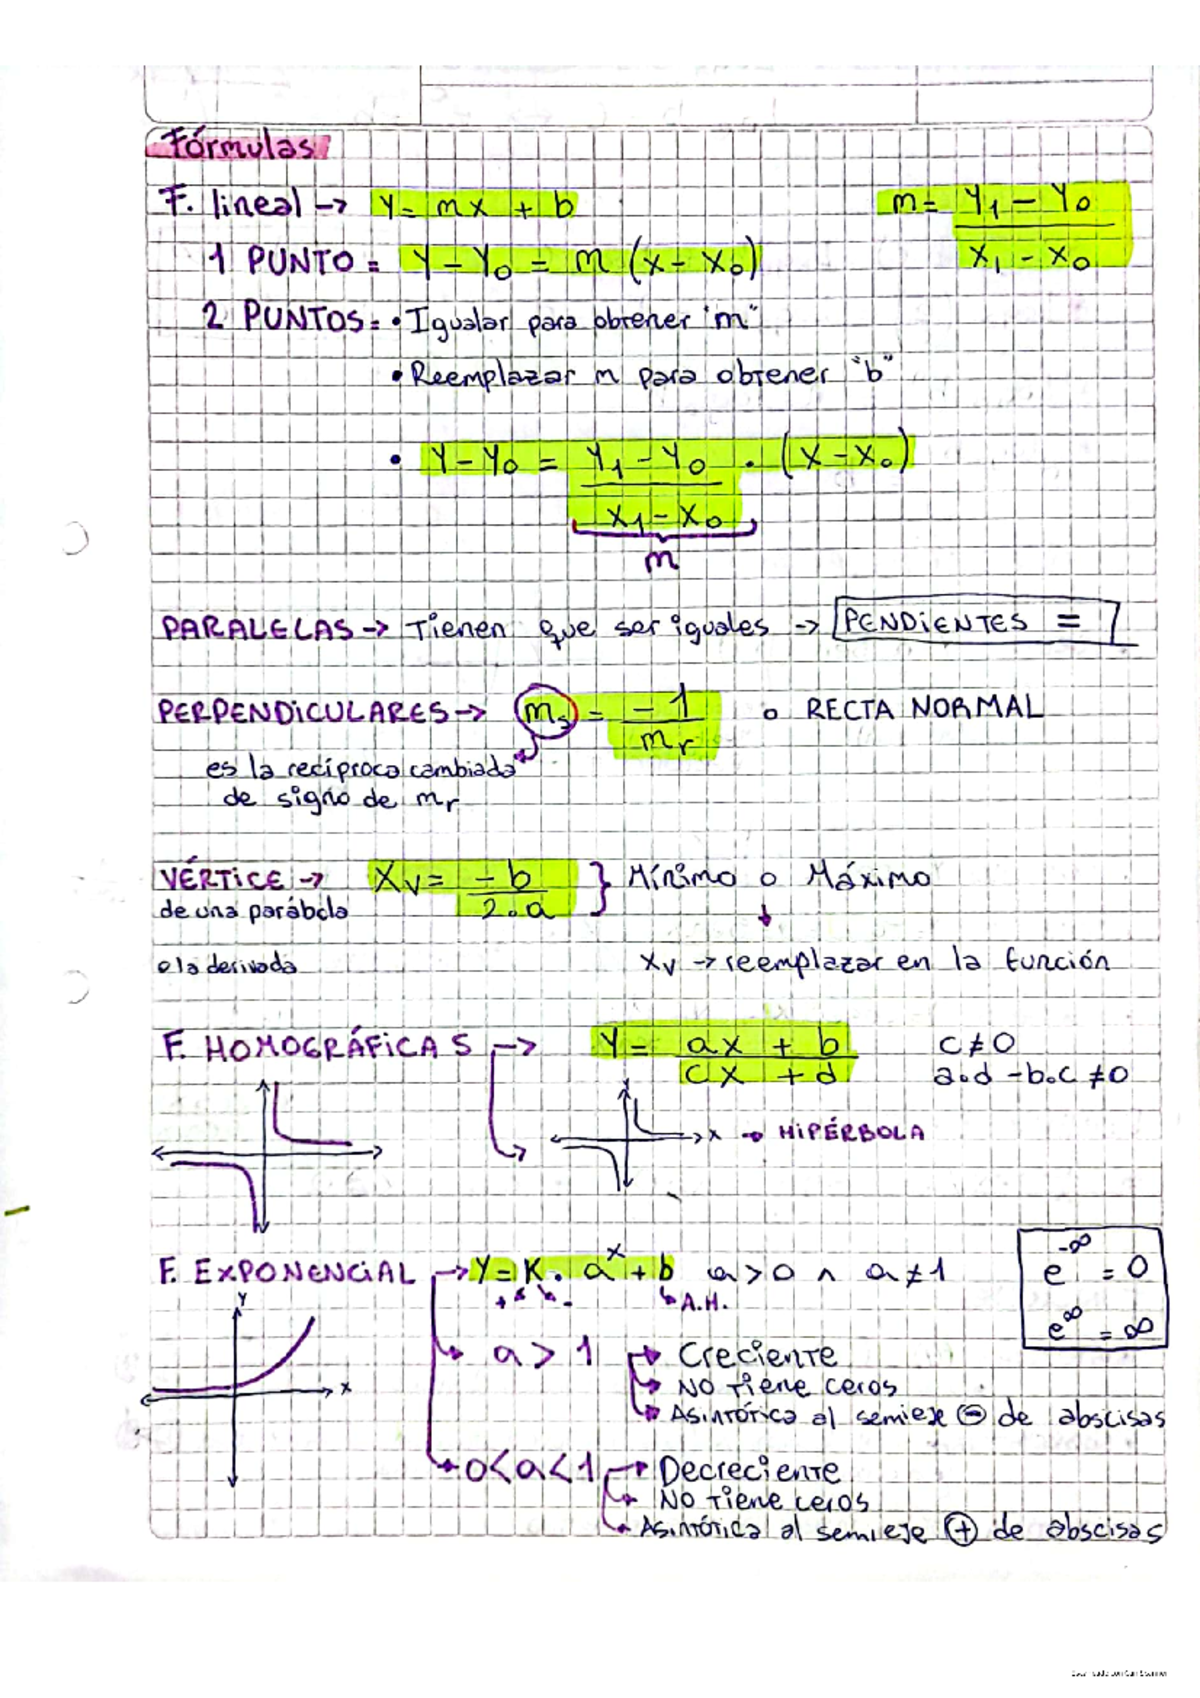 Fórmulas
F. lineal → y = mx + b
m = y₁ - y₀ / x₁ - x₀
1 PUNTO = y - y₀ = m (x - x₀)
2 PUNTOS = • Igualar para obtener "m"
• Reemplazar m para obtener "b"
• y - y₀ = y₁ - y₀ / x₁ - x₀ · (x - x₀)
m
PARALELAS → Tienen que ser iguales → PENDiENTES =
PERPENDiCULARES → mₛ = -1 / mᵣ o RECTA NORMAL
es la recíproca cambiada
de signo de mᵣ
VÉRTiCE → Xv = -b / 2.a } Mínimo o Máximo
de una parábola
o la derivada
Xv → reemplazar en la función
F. HOMOGRÁFiCAS → y = ax + b / cx + d c ≠ 0
a.d - b.c ≠ 0
y
x → HiPÉRBOLA
F. EXPONENCiAL → y = K . aˣ + b a > 0 ∧ a ≠ 1
e^-∞ = 0
+ -
→ A.H.
e^∞ = ∞
y
x
→ a > 1 → Creciente
→ NO tiene ceros
→ Asintótica al semieje ⊖ de abscisas
→ 0 < a < 1 → Decreciente
→ NO tiene ceros
→ Asintótica al semieje ⊕ de abscisas